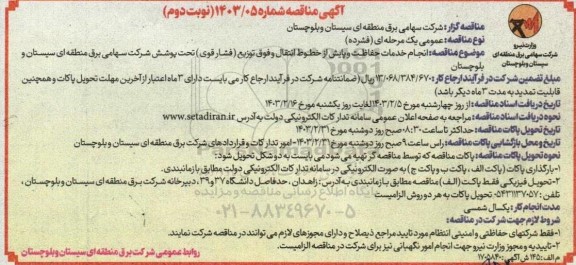 آگهی مناقصه شماره ۱۴۰۳/۰۵ (نوبت دوم)
وزارت نیرو
شرکت سهامی برق منطقه ای
سیستان و بلوچستان
مناقصه گزار: شرکت سهامی برق منطقه ای سیستان وبلوچستان
نوع مناقصه: عمومی یک مرحله ای (فشرده)
موضوع مناقصه: انجام خدمات حفاظت و پایش از خطوط انتقال و فوق توزیع (فشار قوی) تحت پوشش شرکت سهامی برق منطقه ای سیستان و بلوچستان
مبلغ تضمین شرکت در فرآیند ارجاع کار: ۱۳/۰۶۸/۳۸۴/۶۷۰ ریال (ضمانتنامه شرکت در فرآیند ارجاع کار می بایست دارای ۳ ماه اعتبار از آخرین مهلت تحویل پاکات و همچنین
قابلیت تمدید به مدت ۳ ماه دیگر باشد)
تاریخ دریافت اسناد مناقصه: از روز چهارشنبه مورخ ۱۴۰۳/۲/۵ لغایت روز یکشنبه مورخ ۱۴۰۳/۲/۱۶
نحوه دریافت اسناد مناقصه: مراجعه به صفحه اعلان عمومی سامانه تدارکات الکترونیکی دولت به آدرس www.setadiran.ir
تاریخ تحویل پاکات مناقصه: حداکثر تا ساعت ۸:۳۰ صبح روز دوشنبه مورخ ۱۴۰۳/۲/۳۱
تاریخ و محل بازگشایی پاکات مناقصه: راس ساعت ۹ صبح روز دوشنبه مورخ ۱۴۰۳/۲/۳۱ - امور تدارکات و قراردادهای شرکت برق منطقه ای سیستان و بلوچستان
نحوه تحویل پاکات مناقصه: پاکات مناقصه که توسط مناقصه گر تهیه می شود می بایست به دو شکل تحویل شود:
۱- بارگذاری پاکات (پاکت الف، پاکت ب و پاکت ج) به صورت الکترونیکی در سامانه تدارکات الکترونیکی دولت مطابق بازمانبندی.
۲- تحویل فیزیکی فقط پاکت (الف) مناقصه مطابق بازمانبندی به آدرس: زاهدان، حدفاصل دانشگاه ۳۷ و ۳۹، دبیرخانه شرکت برق منطقه ای سیستان و بلوچستان،
تلفن: ۰۵۴۳۱۱۳۷۰۵۷ تحویل پاکات به هر دو روش الزامیست.
مدت انجام کار: یکسال شمسی
شروط لازم جهت شرکت در مناقصه:
۱- فقط شرکتهای حفاظتی و امنیتی انتظام مورد تایید مراجع ذیصلاح و دارای مجوزهای لازم می توانند در مناقصه شرکت نمایند.
۲- تاییدیه و مجوز وزارت نیرو جهت انجام امور نگهبانی نیز برای شرکت در مناقصه الزامیست.
م الف: ۱۴۵ ش آگهی: ۱۷۰۵۸۴۰
روابط عمومی شرکت برق منطقه ای سیستان و بلوچستان
۰۲۱-۸۸۳۴۹۶۷۰-۵